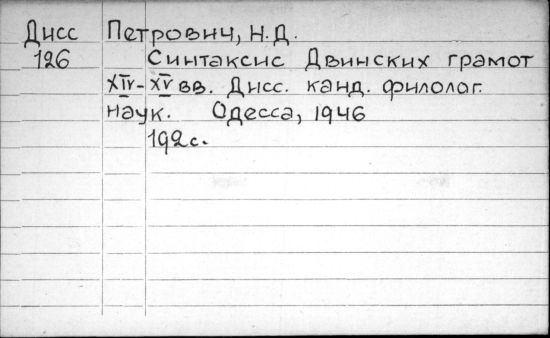 Дисс Петрович, Н.Д.
126 Синтаксис Двинских грамот
XIV-XV вв. Дисс. канд. филолог.
наук. Одесса, 1946
192с.